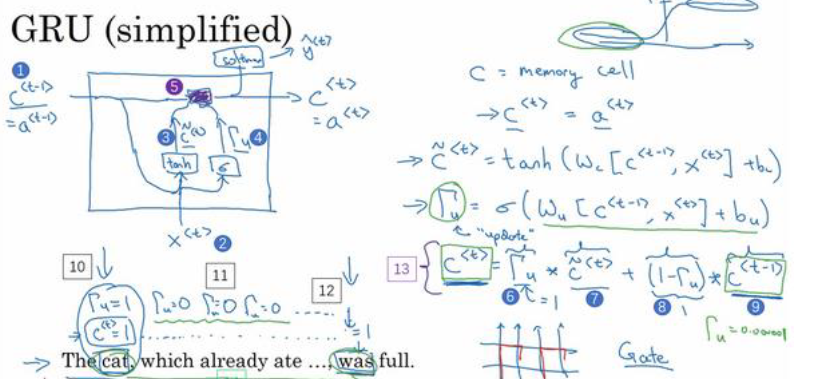 GRU (simplified)
softmax → ŷ<t>
1
c<t-1>
= a<t-1>
5
c<t>
= a<t>
3
c̃<t>
Γu
4
tanh
σ
x<t>
2
C = memory cell
→ c<t> = a<t>
→ c̃<t> = tanh (Wc [c<t-1>, x<t>] + bc)
→ Γu = σ (Wu [c<t-1>, x<t>] + bu)
"update"
13
c<t> = Γu * c̃<t> + (1-Γu) * c<t-1>
6
= 1
7
8
1
9
Γu = 0.000001
Gate
10
11
12
Γu=1 Γu=0 Γu=0 Γu=0 .....
c<t>=1 ..........
= 1
→ The cat, which already ate ..., was full.